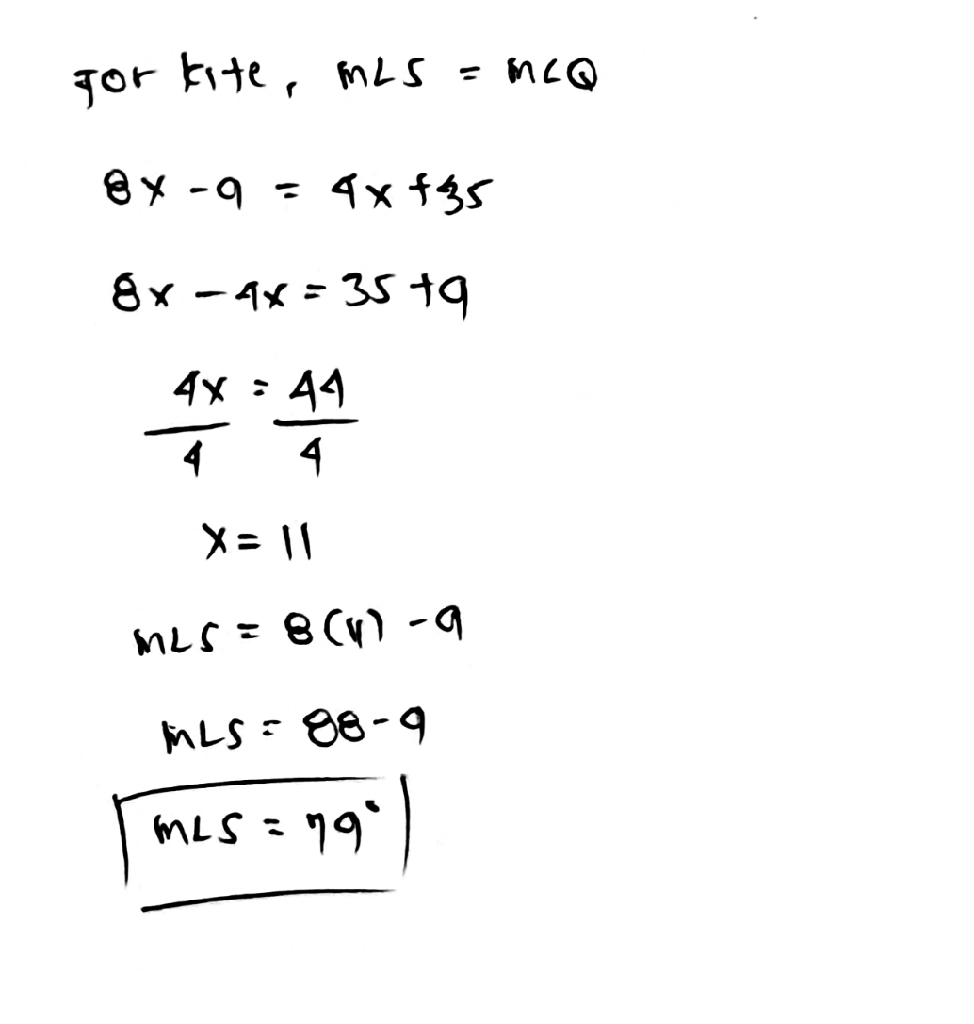 For kite, m∠S = m∠Q
8x - 9 = 4x + 35
8x - 4x = 35 + 9
4x = 44
4 4
x = 11
m∠S = 8(11) - 9
m∠S = 88 - 9
m∠S = 79°